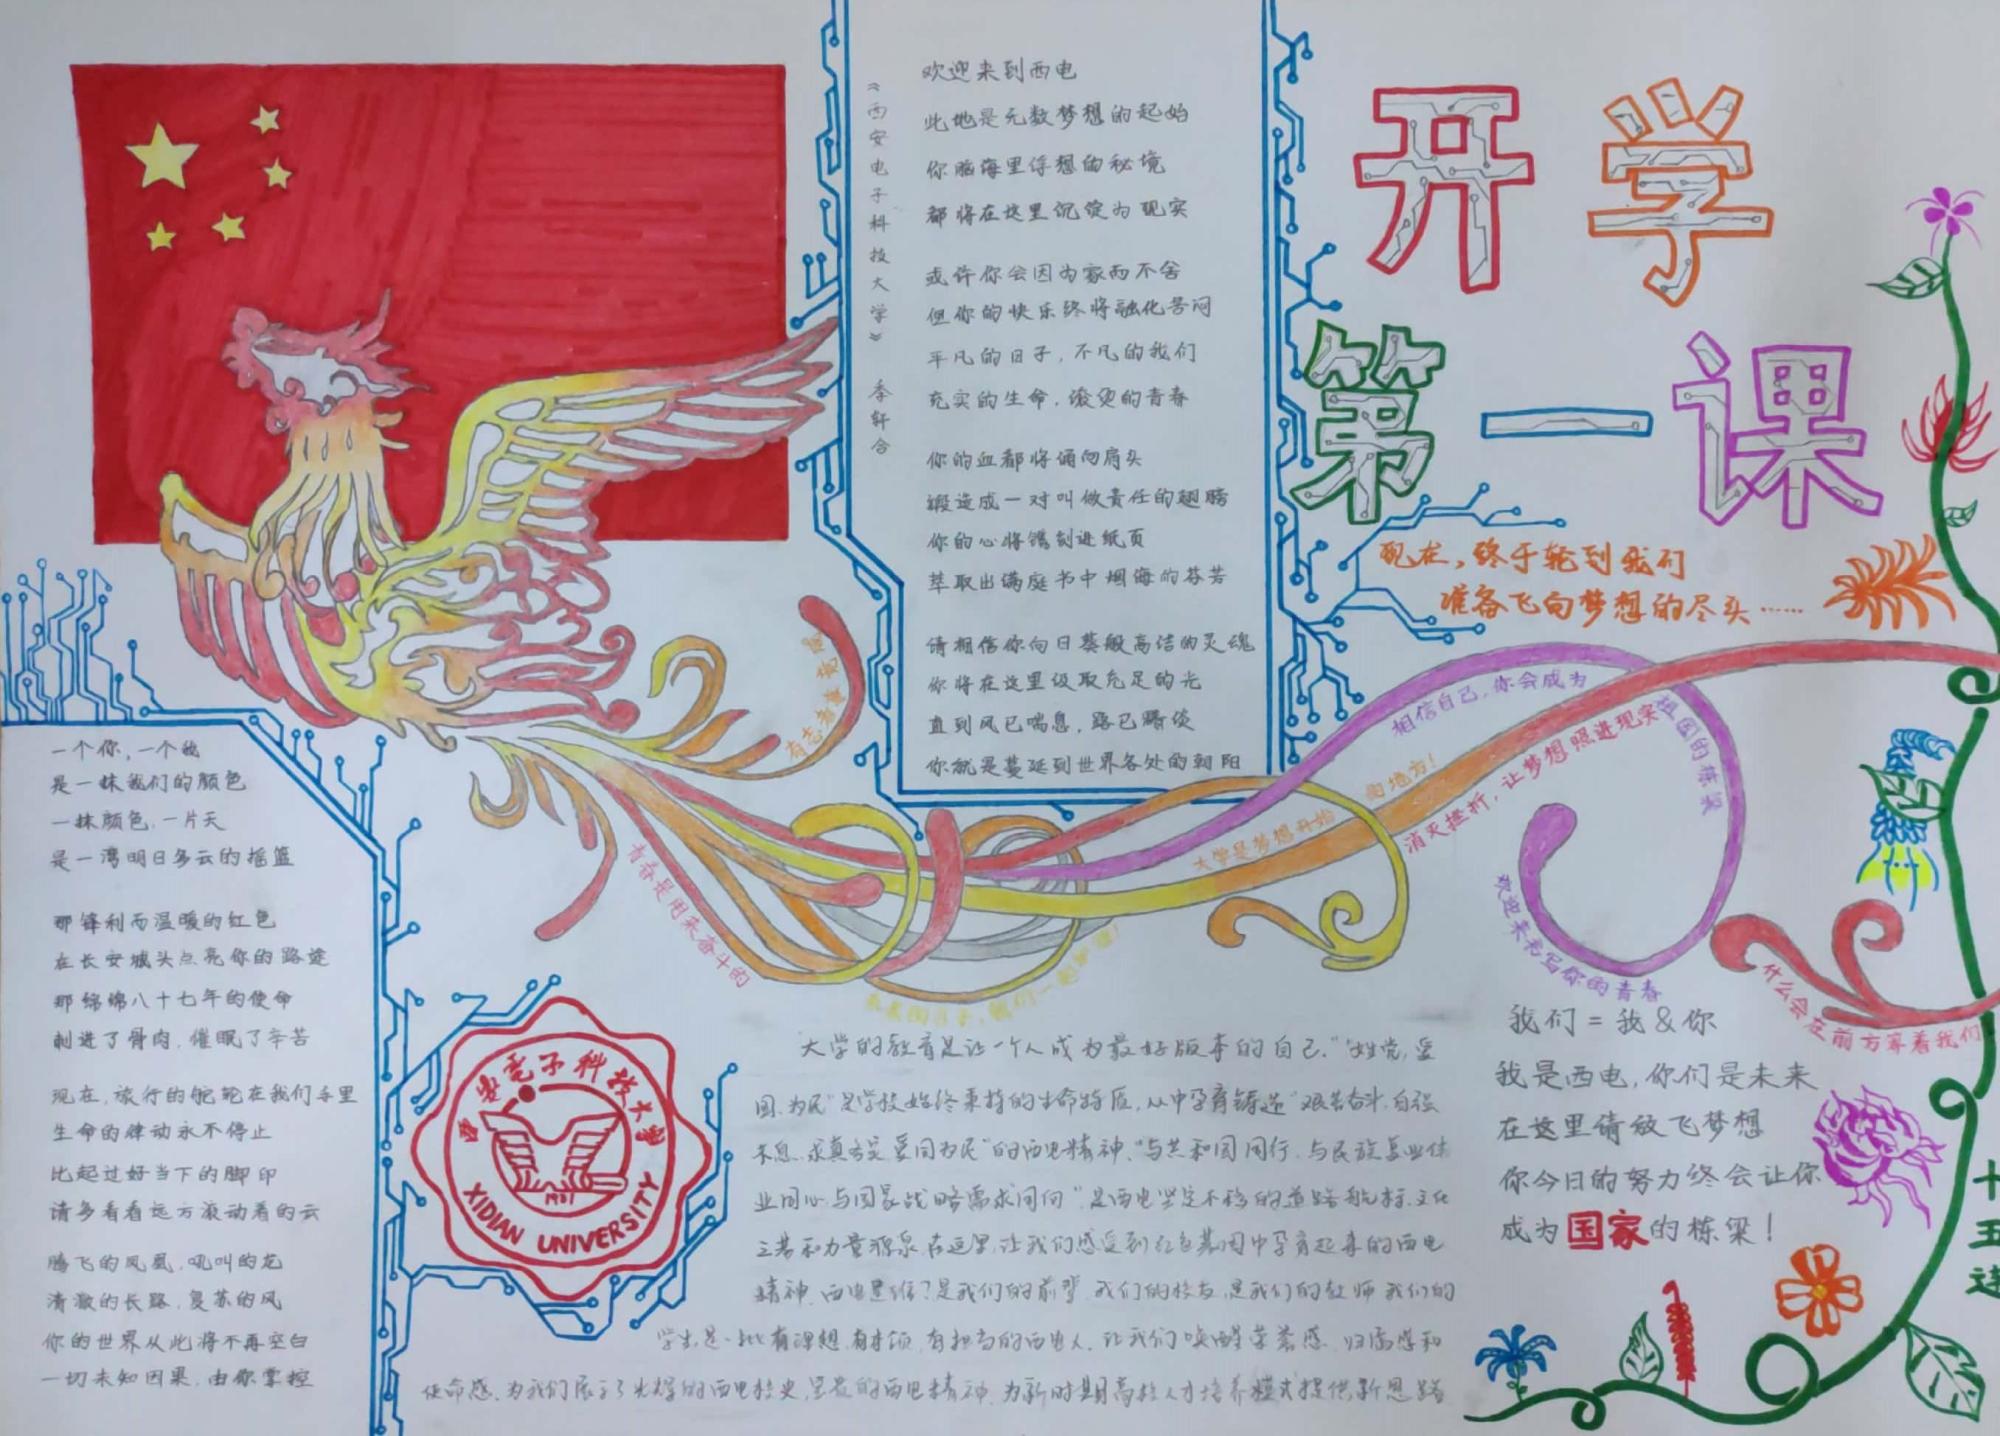 开学
第一课
现在，终于轮到我们
准备飞向梦想的尽头……
《西安电子科技大学》 季轩合
欢迎来到西电
此地是无数梦想的起始
你脑海里浮想的秘境
都将在这里沉淀为现实
或许你会因为家而不舍
但你的快乐终将融化苦闷
平凡的日子，不凡的我们
充实的生命，滚烫的青春
你的血都将涌向肩头
锻造成一对叫做责任的翅膀
你的心将镌刻进纸页
萃取出满庭书中烟海的芬芳
请相信你向日葵般高洁的灵魂
你将在这里汲取充足的光
直到风已喘息，路已
你就是蔓延到世界各处的朝阳
一个你，一个我
是一抹我们的颜色
一抹颜色，一片天
是一湾明日多云的摇篮
那锋利而温暖的红色
在长安城头点亮你的路途
那绵绵八十七年的使命
刺进了骨肉，催眠了辛苦
现在，旅行的舵轮在我们手里
生命的律动永不停止
比起过好当下的脚印
请多看看远方滚动着的云
腾飞的凤凰，吼叫的龙
清澈的长路，复苏的风
你的世界从此将不再空白
一切未知因果，由你掌控
有志者事竟
青春是用来奋斗的
我们一起
大学是梦想开始
的地方！
相信自己，你会成为
祖国的栋梁
消灭挫折，让梦想照进现实
欢迎来书写你的青春
什么会在前方等着我们
西安电子科技大学
1931
XIDIAN UNIVERSITY
大学的教育是让一个人成为最好版本的自己。"姓党、爱
国、为民"是学校始终秉持的生命特质，从中孕育铸造"艰苦奋斗、自强
不息、求真务实、爱国为民"的西电精神。"与共和国同行、与民族复业休
业同心、与国家战略需求同向"是西电坚定不移的道路航标、文化
之基和力量源泉。在这里，让我们感受到红色基因中孕育起来的西电
精神。西电是谁？是我们的前辈，我们的校友，是我们的教师，我们的
学生，是一批有理想、有本领、有担当的西电人。让我们唤醒荣誉感、归属感和
使命感，为我们展示了光辉的西电校史，的西电精神，为新时期高校人才培养模式提供新思路
我们=我&你
我是西电，你们是未来
在这里请放飞梦想
你今日的努力终会让你
成为国家的栋梁！
十五连